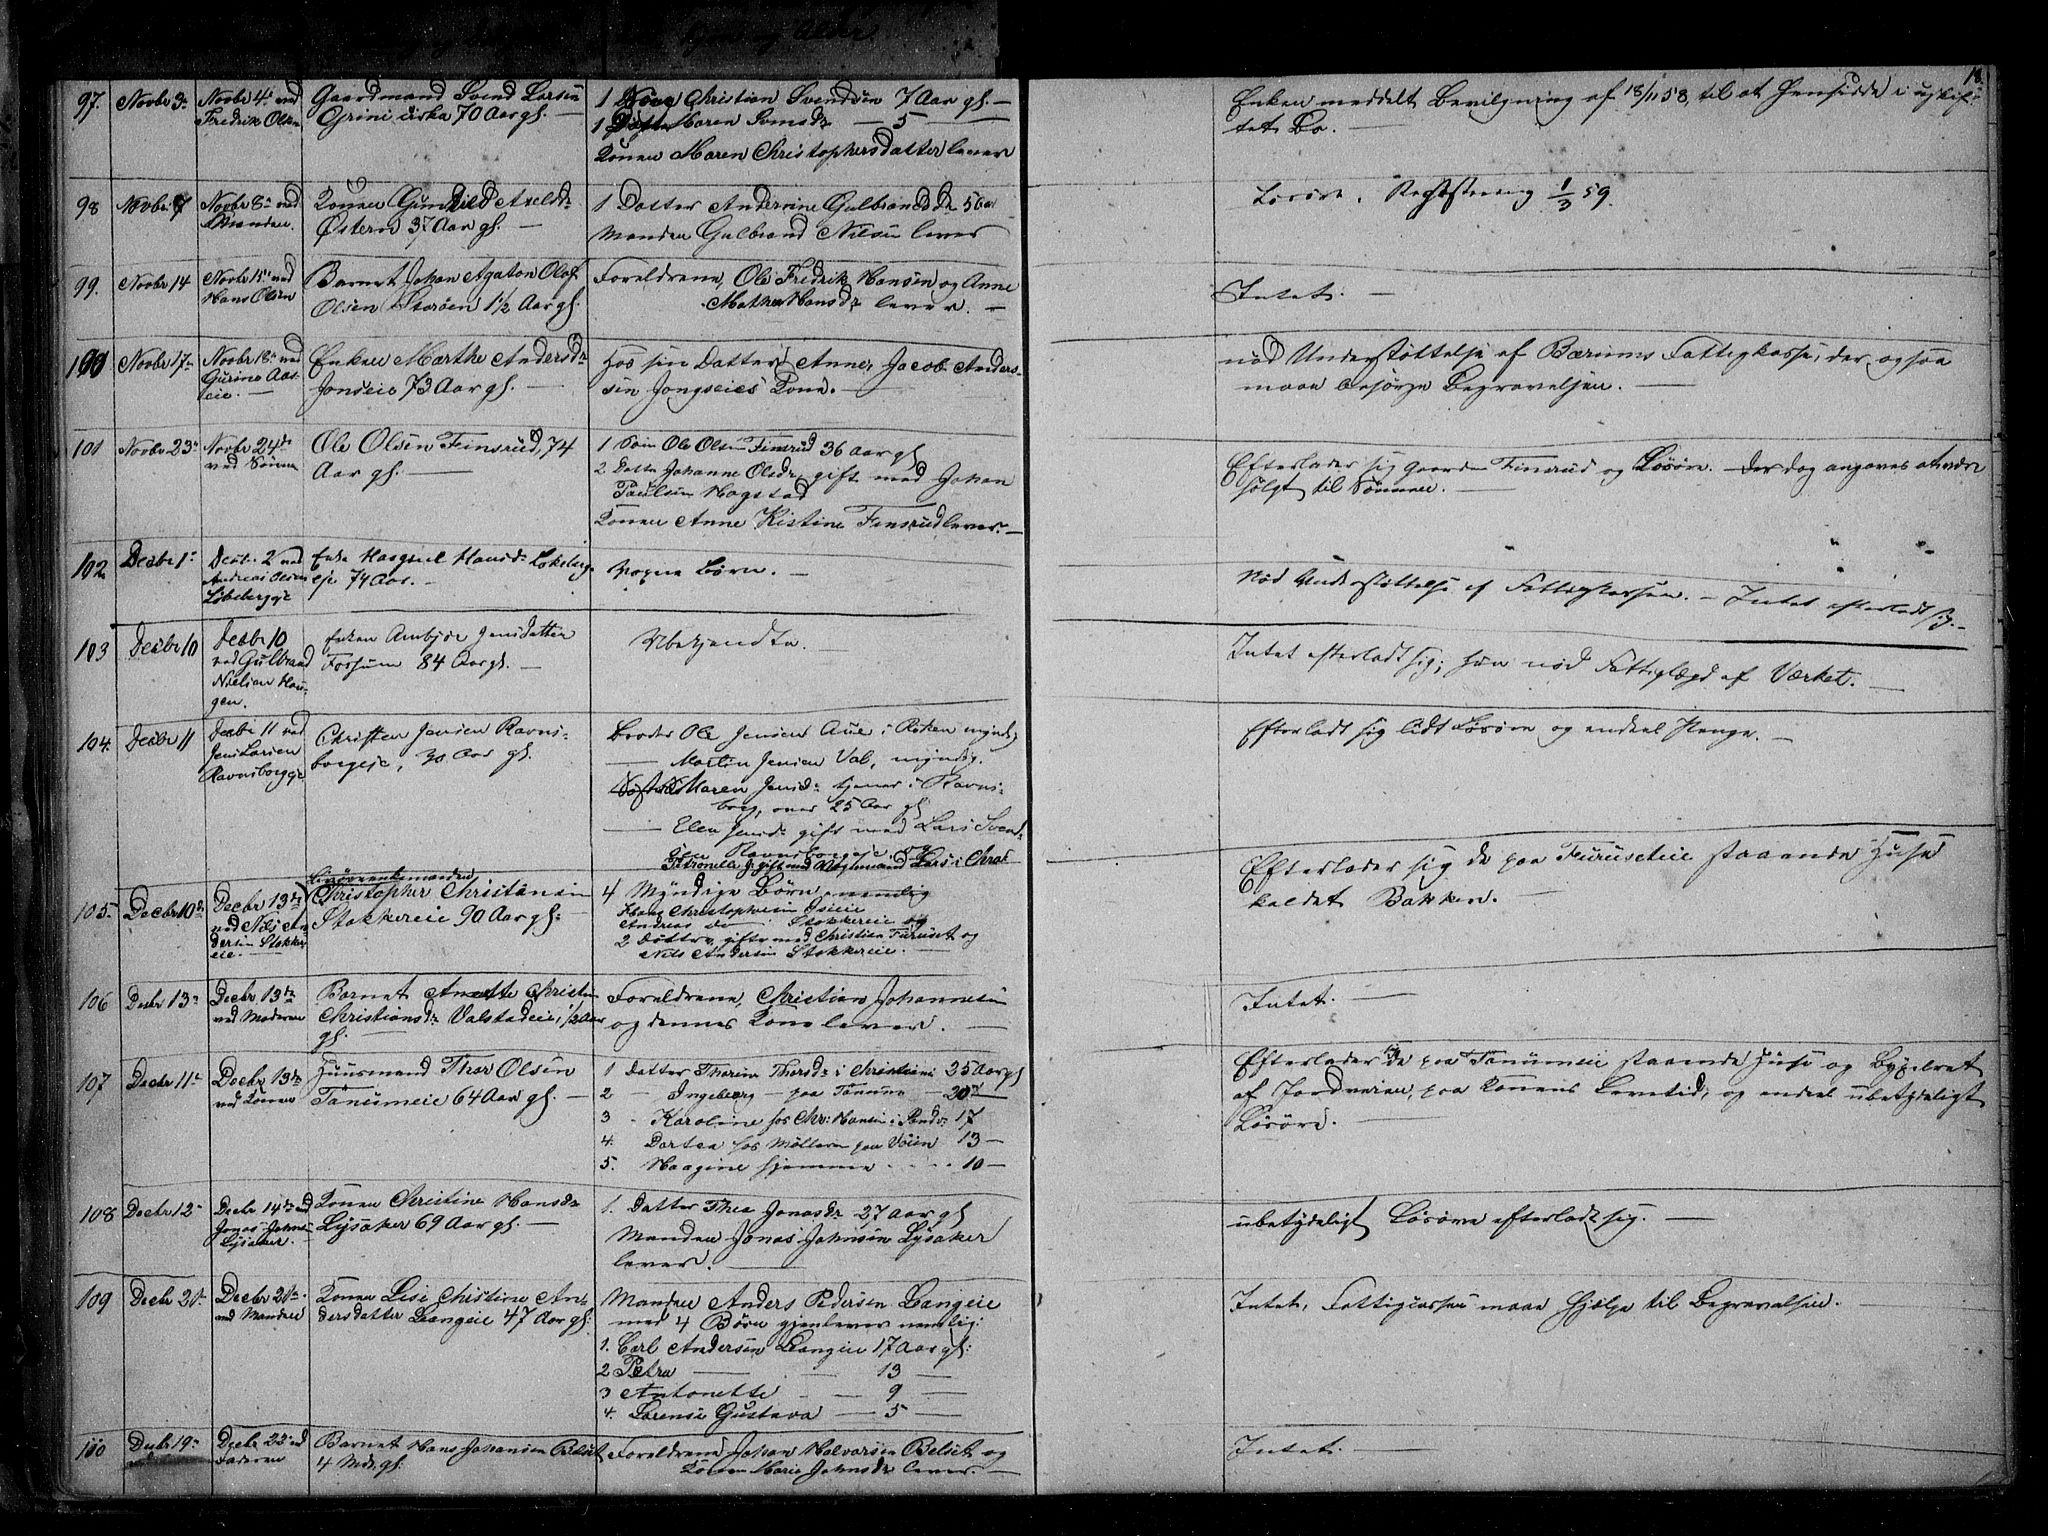 Kjøn og Alder
18.
97. Novbr 3. Novbr 4. ved Fredrik Olsen
Gaardmand Svend Larsen
Grini cirka 70 Aar gl. —
1 Søn Christian Svendsen 7 Aar gl. —
1 Datter Maren Svensdr — 5 —
Konen Maren Christophersdatter lever
Enken meddelt Bevilgning af 18/11 58, til at hensidde i uskif-
tet Bo. —
98 Novbr 7 Novbr 8 ved Manden
Konen Gunhild Axelsdr
Østern 37 Aar gl. —
1 Datter Andersine Gulbrandsdr 5 Aar
Manden Gulbrand Nilsen lever
Løsøre. Registrering 1/3 59.
99. Novbr 14 Novbr 15 ved Hans Olsen
Barnet Johan Agaton Olaf
Olsen Størøen 1 1/2 Aar gl.
Foreldrene, Ole Fredrik Hansen og Anne
Mathea Hansdr lever. —
Intet. —
100 Novbr 17 Novbr 18 ved Gurine Aas-
eie. —
Enken Marthe Andersdr
Jonseie 73 Aar gl. —
Hos sin Datter Anne, Jacob Anders-
sen Jongseies Kone. —
nød Understøttelse af Bærums Fattigkasse, der ogsaa
maa besørge Begravelsen. —
101 Novbr 23 Novbr 24de
ved Sønnen
Ole Olsen Finsrud, 74
Aar gl. —
1 Søn Ole Olsen Finsrud 36 Aar gl
2 Datter Johanne Olsdr gift med Johan
Paulsen Hogstad
Konen Anne Kistine Finsrud lever. —
Efterlader sig Gaarden Finsrud og Løsøre. — Der dog angaves at være
solgt til Sønnen. —
102 Decbr 1 Decbr. 2 ved
Andreas Olsen
Løkebergeje
Enke Hangsiel Hansdr Løkeberg-
eje 74 Aar. —
Vogne Børn. —
Nød Understøttelse af Fattigkassen. — Intet efterladt sig. —
103 Decbr 10 Decbr 10
ved Gulbrand
Nielsen Hau-
gen.
Enken Ambjør Jensdatter
Fossum 84 Aar gl. —
Ubekjendte
Intet efterladt sig; hun nød Fattiglægd af Værket. —
104. Decbr 11 Decbr 11 ved
Jens Larsen
Ravnsborgeje
Christen Jensen Ravns-
borgeje, 30 Aar gl.
Broder Ole Jensen Aue i Røken myndig
— Martin Jensen Val, myndig.
Søster Maren Jensdr tjener i Ravns-
borg, over 25 Aar gl
— Elen Jensdr gift med Lars Svend-
sen Ravnsborgeje. og
Petronelle J. gift med
Efterladt sig lidt Løsøre og endeel Penge. —
105. Decbr 10de Decbr 13de
ved Nils An-
dersen Stokker-
eie. —
Christopher Christiansen
Stokkereie 90 Aar gl: —
4 Myndige Børn nemlig
Hans Christophersen Oseie
Andreas do — Stokkereie og
2 Døttre, gifte med Christian Furuset og
Nils Andersen Stokkereie. —
Efterlader sig de paa Furuseteie staaende Huse
kaldet Bakken. —
106 Decbr 13 Decbr 13de
ved Moderen
Barnet Anette Christine
Christiansdr Valstadeie, 1/2 Aar
gl.
Foreldrene, Christian Johannesen
og dennes Kone lever. —
Intet. —
107 Decbr 11 Decbr 13de
ved Konen
Huusmand Thor Olsen
Tanumeie 64 Aar gl. —
1 Datter Thorine Thorsdr i Christiania 25 Aar gl
2 — Ingeborg — paa Tanum — 20 —
3 - Karoline hos Chr: Hansen i Sandv: 17
4. Dortea hos Mølleren paa Vøien 13 —
5. Haagine hjemme . . . . 10 —
Efterlader sig de paa Tanumeie staaende Huse og Bygselret
af Jordveien, paa Konens Levetid, og endeel ubetydeligt
Løsøre. —
108 Decbr 12 Decbr 14de ved
Jonas Johns:
Lysaker. —
Konen Christine Hansdr
Lysaker 69 Aar gl. —
1. Datter Thea Jonasdr 27 Aar gl
Manden Jonas Johnsen Lysaker
lever. —
ubetydeligt Løsøre efterladt sig. —
109 Decbr 21 Decbr 21
ved Manden
Konen Lise Christine An-
dersdatter Langeie 47 Aar gl:
Manden Anders Pedersen Langeie
med 4 Børn gjenlever nemlig:
1. Carl Andersen Langeie 17 Aar gl:
2 Petra — — 13 —
3 Antonette — — 9 —
4. Lorense Gustava — 5 —
Intet, Fattigkassen maa hjelpe til Begravelsen. —
110 Decbr 19 Decbr 22 ved
Faderen
Barnet Hans Johansen Belset
4 Mdr. gl.
Foreldrene Johan Halvorsen Belset og
Konen Marie Johnsdr lever. —
Intet. —